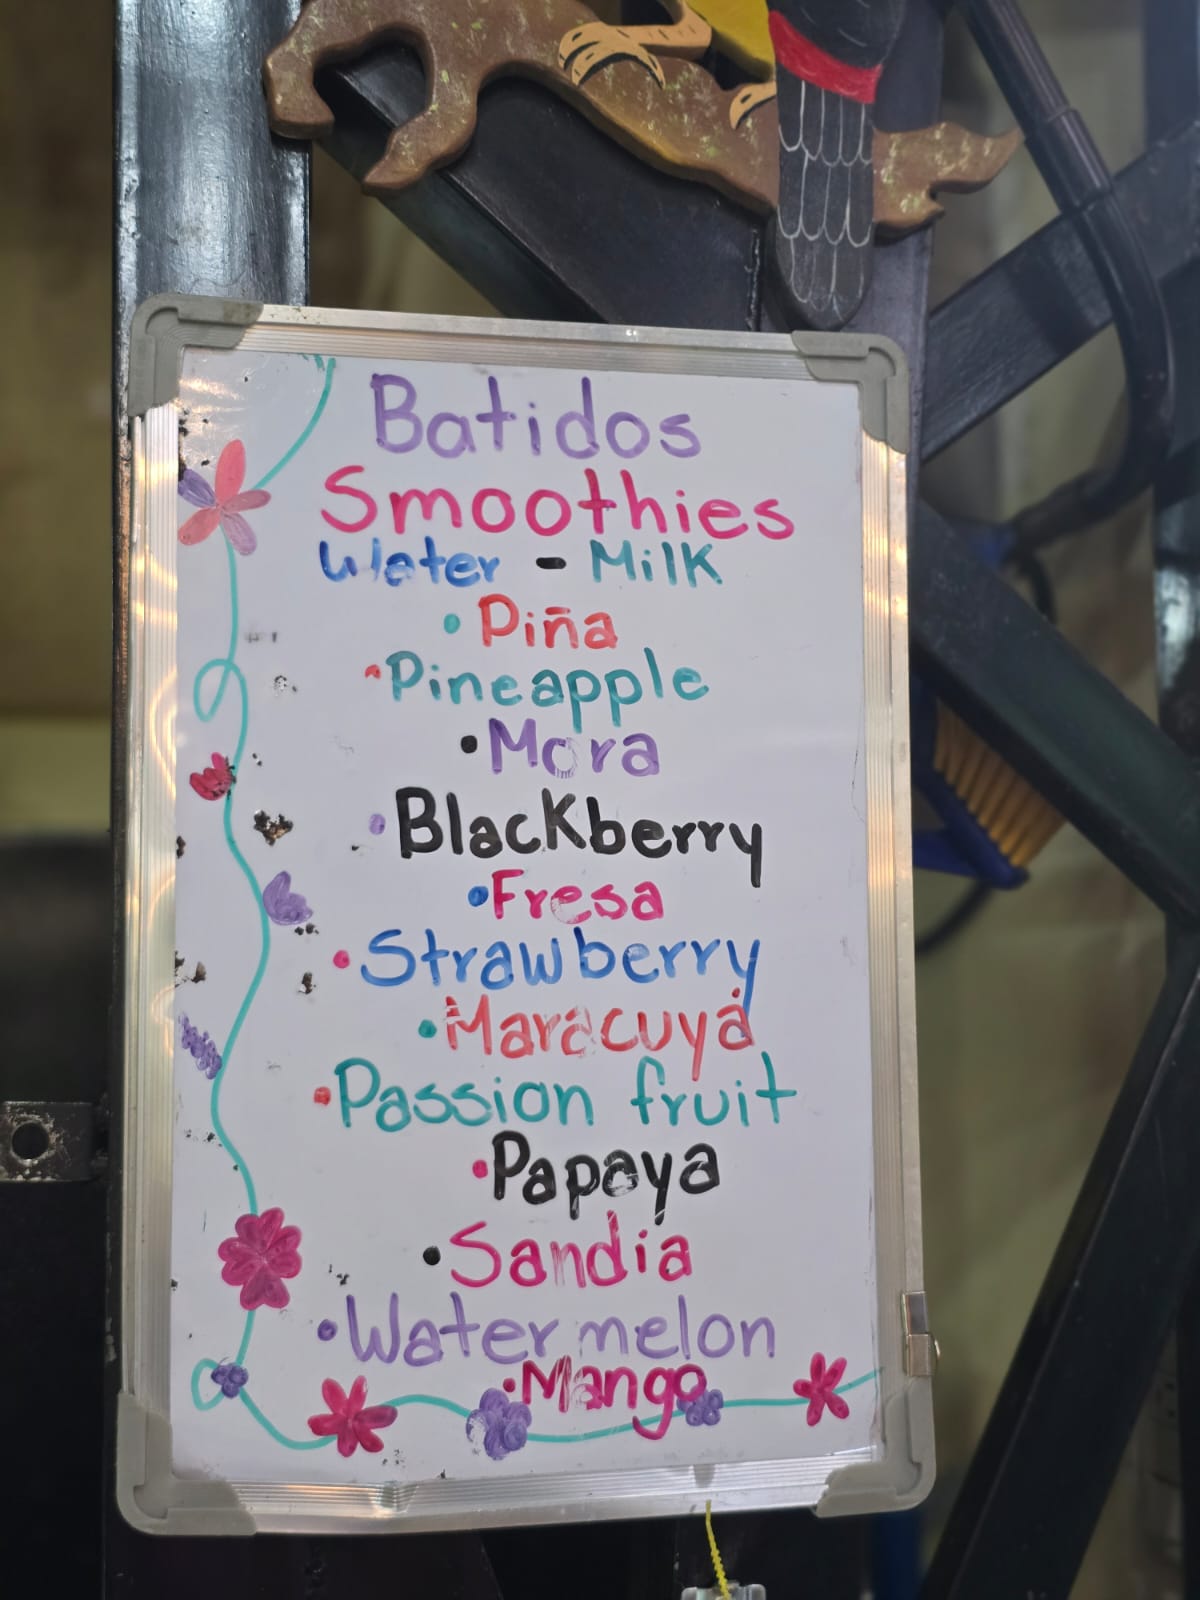 Batidos
Smoothies
Water - Milk
• Piña
• Pineapple
• Mora
• Blackberry
• Fresa
• Strawberry
• Maracuyá
• Passion fruit
• Papaya
• Sandía
• Watermelon
• Mango